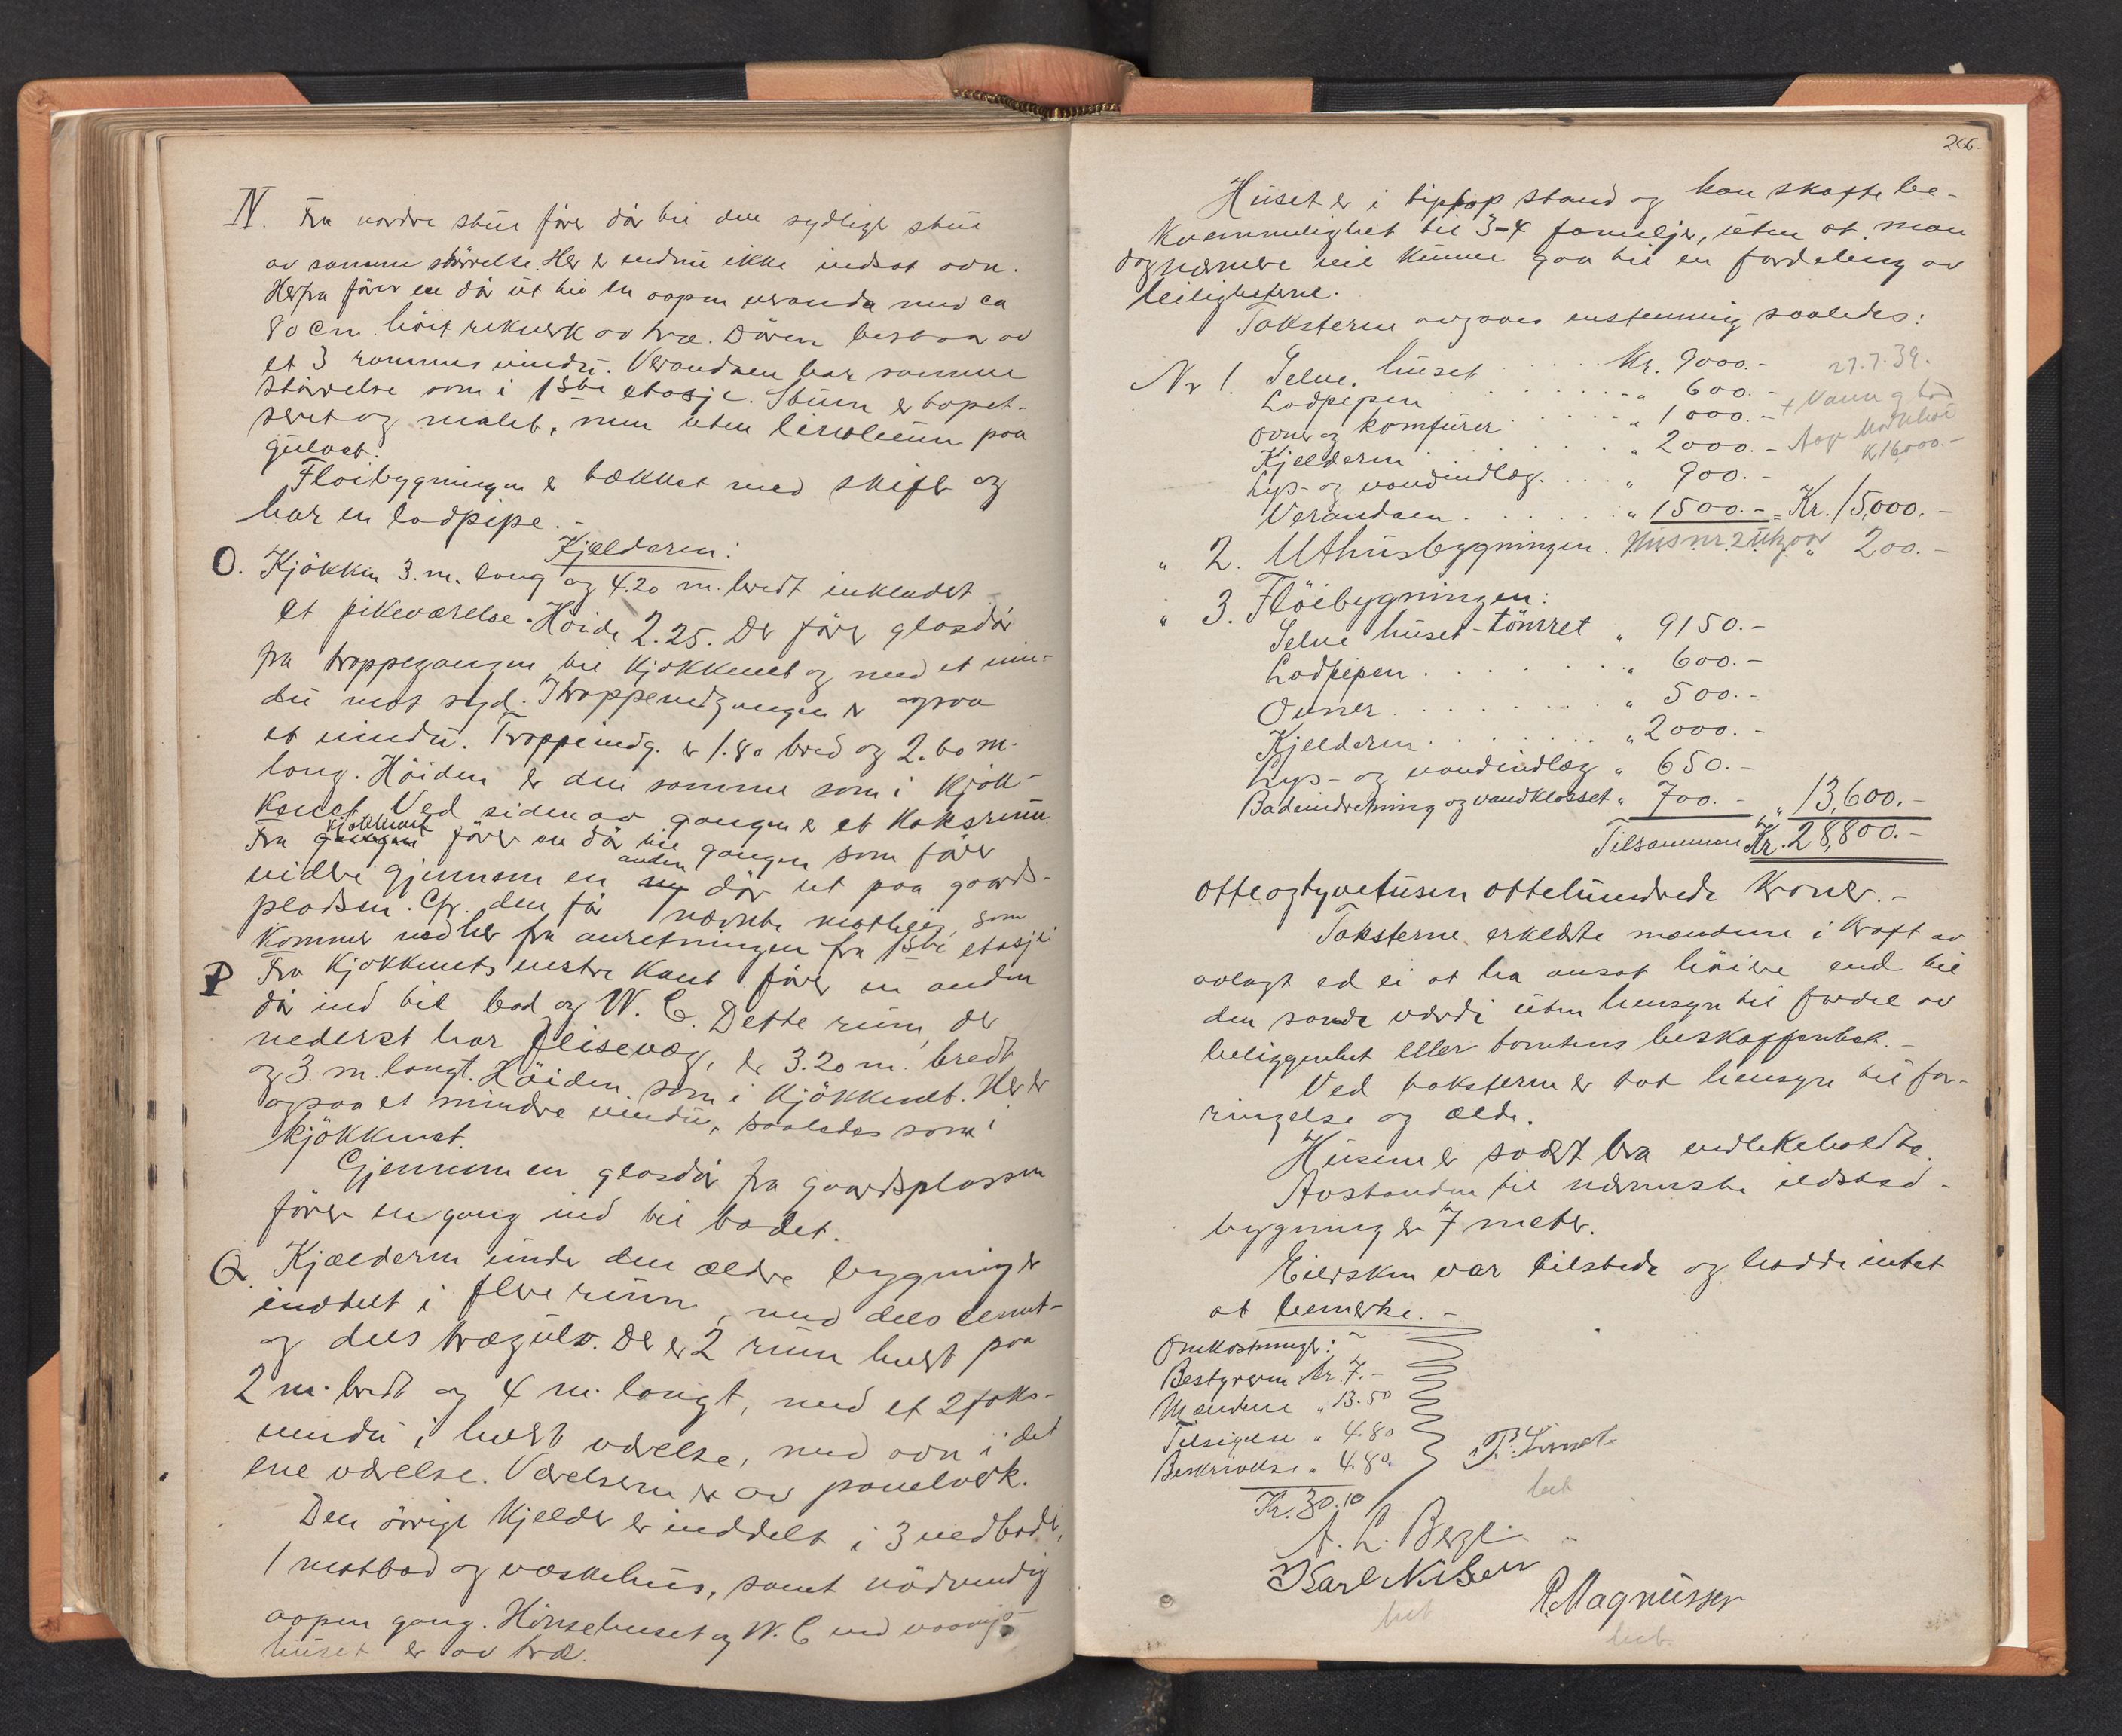 N. Fra nordre stue fører dør til den sydlige stue
av samme størrelse. Her er endnu ikke indsat ovn.
Herfra fører en dør ut til en aapen veranda med ca
80 cm. høit rekverk av træ. Døren bestaar av
et 3 rammers vindu. Verandaen har samme
størrelse som i 1ste etasje. Stuen er tapet-
seret og malet, men uten linoleum paa
gulvet.
Fløibygningen er tækket med skifer og
har en ladpipe. -
Kjælderen:
O. Kjøkken 3. m. lang og 4.20 m. bredt inkludert
et pikeværelse. Høide 2.25. Der fører glasdør
fra trappegangen til kjøkkenet og med et vin-
du mot syd. I trappeindgangen er ogsaa
et vindu. Trappeindg. er 1.80 bred og 2.60 m.
lang. Høiden er den samme som i kjøk-
kenet. Ved siden av gangen er et koksrum.
kjøkkenet
Fra gangen fører en dør til gangen som fører
anden
videre gjennem en ny dør ut paa gaards-
pladsen. Cfr. den før nævnte matheis, som
kommer ned her fra anretningen fra 1ste etasje
P Fra kjøkkenets vestre kant fører en anden
dør ind til bad og W. C. Dette rum, der
nederst har flisevæg, er 3.20 m. bredt
og 3. m. langt. Høiden som i kjøkkenet. Her er
ogsaa et mindre vindu, saaledes som i
kjøkkenet.
Gjennem en glasdør fra gaardsplassen
fører en gang ind til badet.
Q. Kjælderen under den ældre bygning er
inddelt i flere rum, med dels cement-
og dels trægulv. Der er 2 rum hvert paa
2 m. bredt og 4 m. langt, med et 2 faks-
vindu i hvert værelse, med ovn i det
ene værelse. Værelserne er av panelverk.
Den øvrige kjelder er inddelt i 3 vedboder,
1 matbod og vaskehus, samt nødvendig
aapen gang. Hønsehuset og W. C ved
huset er av træ.
266.
Huset er i tiptop stand og kan skaffe be-
kvemmelighet til 3-4 familjer, uten at man
dog nærmere vil kunne gaa til en fordeling av
leiligheterne.
Taksterne avgaves enstemmig saaledes:
Nr 1. Selve huset . . . . Kr. 9000.- 27.7.39.
Ladpipen . . . . . " 600.- + Vann og bad
Ovner og komfurer . . . " 1000.-
Kjelderen . . . . . " 2000.- Kr 16000.-
Lys- og vandindlæg. . . . " 900.-
Verandaen . . . . . " 1500.- = Kr. 15,000.-
" 2. Uthusbygningen. Hus nr 2 Utgaar " 200.-
" 3. Fløibygningen:
Selve huset - tømret " 9150.-
Ladpipen . . . . . " 600.-
Ovner . . . . . . " 500.-
Kjelderen . . . . . " 2000.-
Lys- og vandindlæg " 650.-
Badeindretning og vandklosset " 700.- " 13,600.-
Tilsammen Kr. 28,800.-
otteogtyvetusen ottehundrede Kroner. -
Taksterne erklærte mændene i kraft av
avlagt ed ei at ha ansat høiere end til
den sande værdi uten hensyn til fordel av
beliggenhet eller tomtens beskaffenhet. -
Ved taksterne er tat hensyn til for-
ringelse og ælde.
Husene er svært bra vedlikeholdte.
Avstanden til nærmeste ildsted-
bygning er 7 meter.
Eiersken var tilstede og hadde intet
at bemerke. -
Omkostninger:
Bestyreren kr. 7.-
Mændene " 13.50
Tilsigelse " 4.80
Beskrivelse " 4.80.
Kr. 30.10
A. L. Berge
Karl Nilsen
R. Magnussen